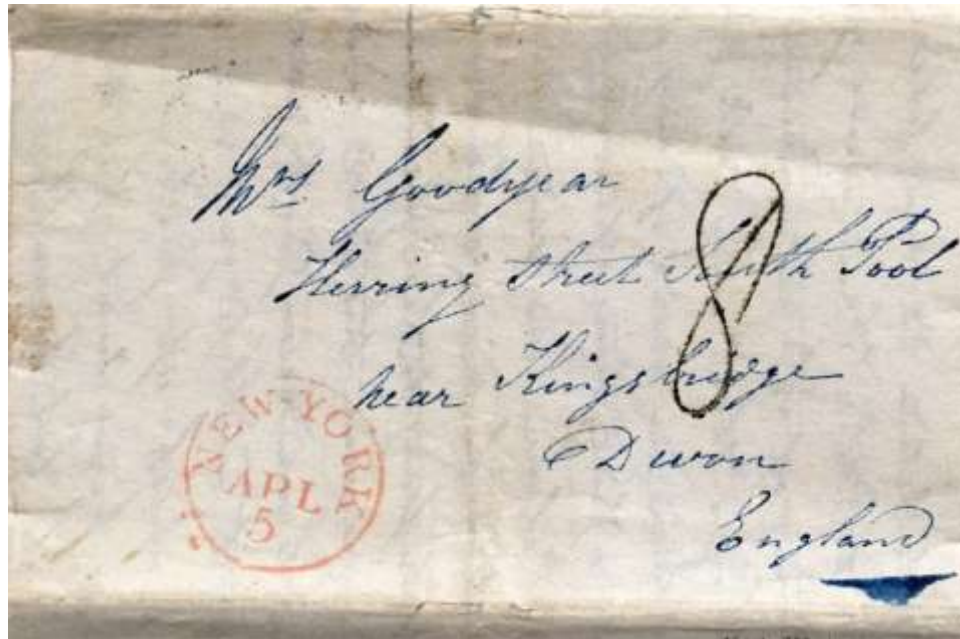 Mrs Goodyear
Herring Street South Pool
near Kingsbridge
Devon
England
8
NEW YORK
APL
5